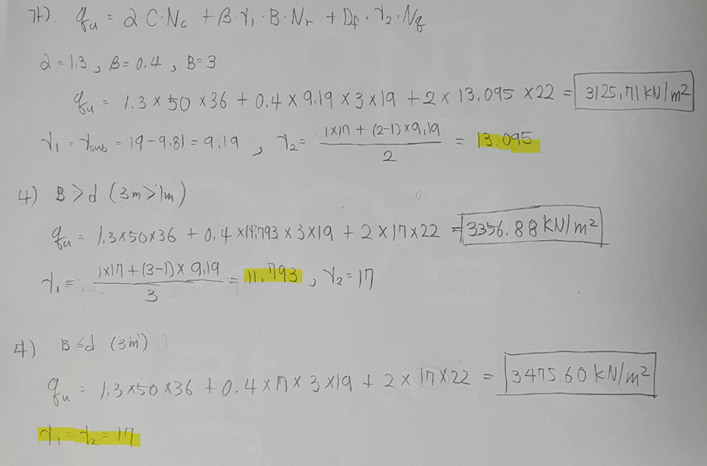 가) qu = α·C·Nc + β·γ1·B·Nr + Df·γ2·Nq
α=1.3, β=0.4, B=3
qu = 1.3×50×36 + 0.4×9.19×3×19 + 2×13.095×22 = 3125.71 kN/m²
γ1 = γsub = 19-9.81 = 9.19, γ2 = (1×17 + (2-1)×9.19)/2 = 13.095
나) B>d (3m>1m)
qu = 1.3×50×36 + 0.4×11.793×3×19 + 2×17×22 = 3356.88 kN/m²
γ1 = (1×17 + (3-1)×9.19)/3 = 11.793, γ2=17
다) B≤d (3m)
qu = 1.3×50×36 + 0.4×17×3×19 + 2×17×22 = 3475.60 kN/m²
γ1 = γ2 = 17